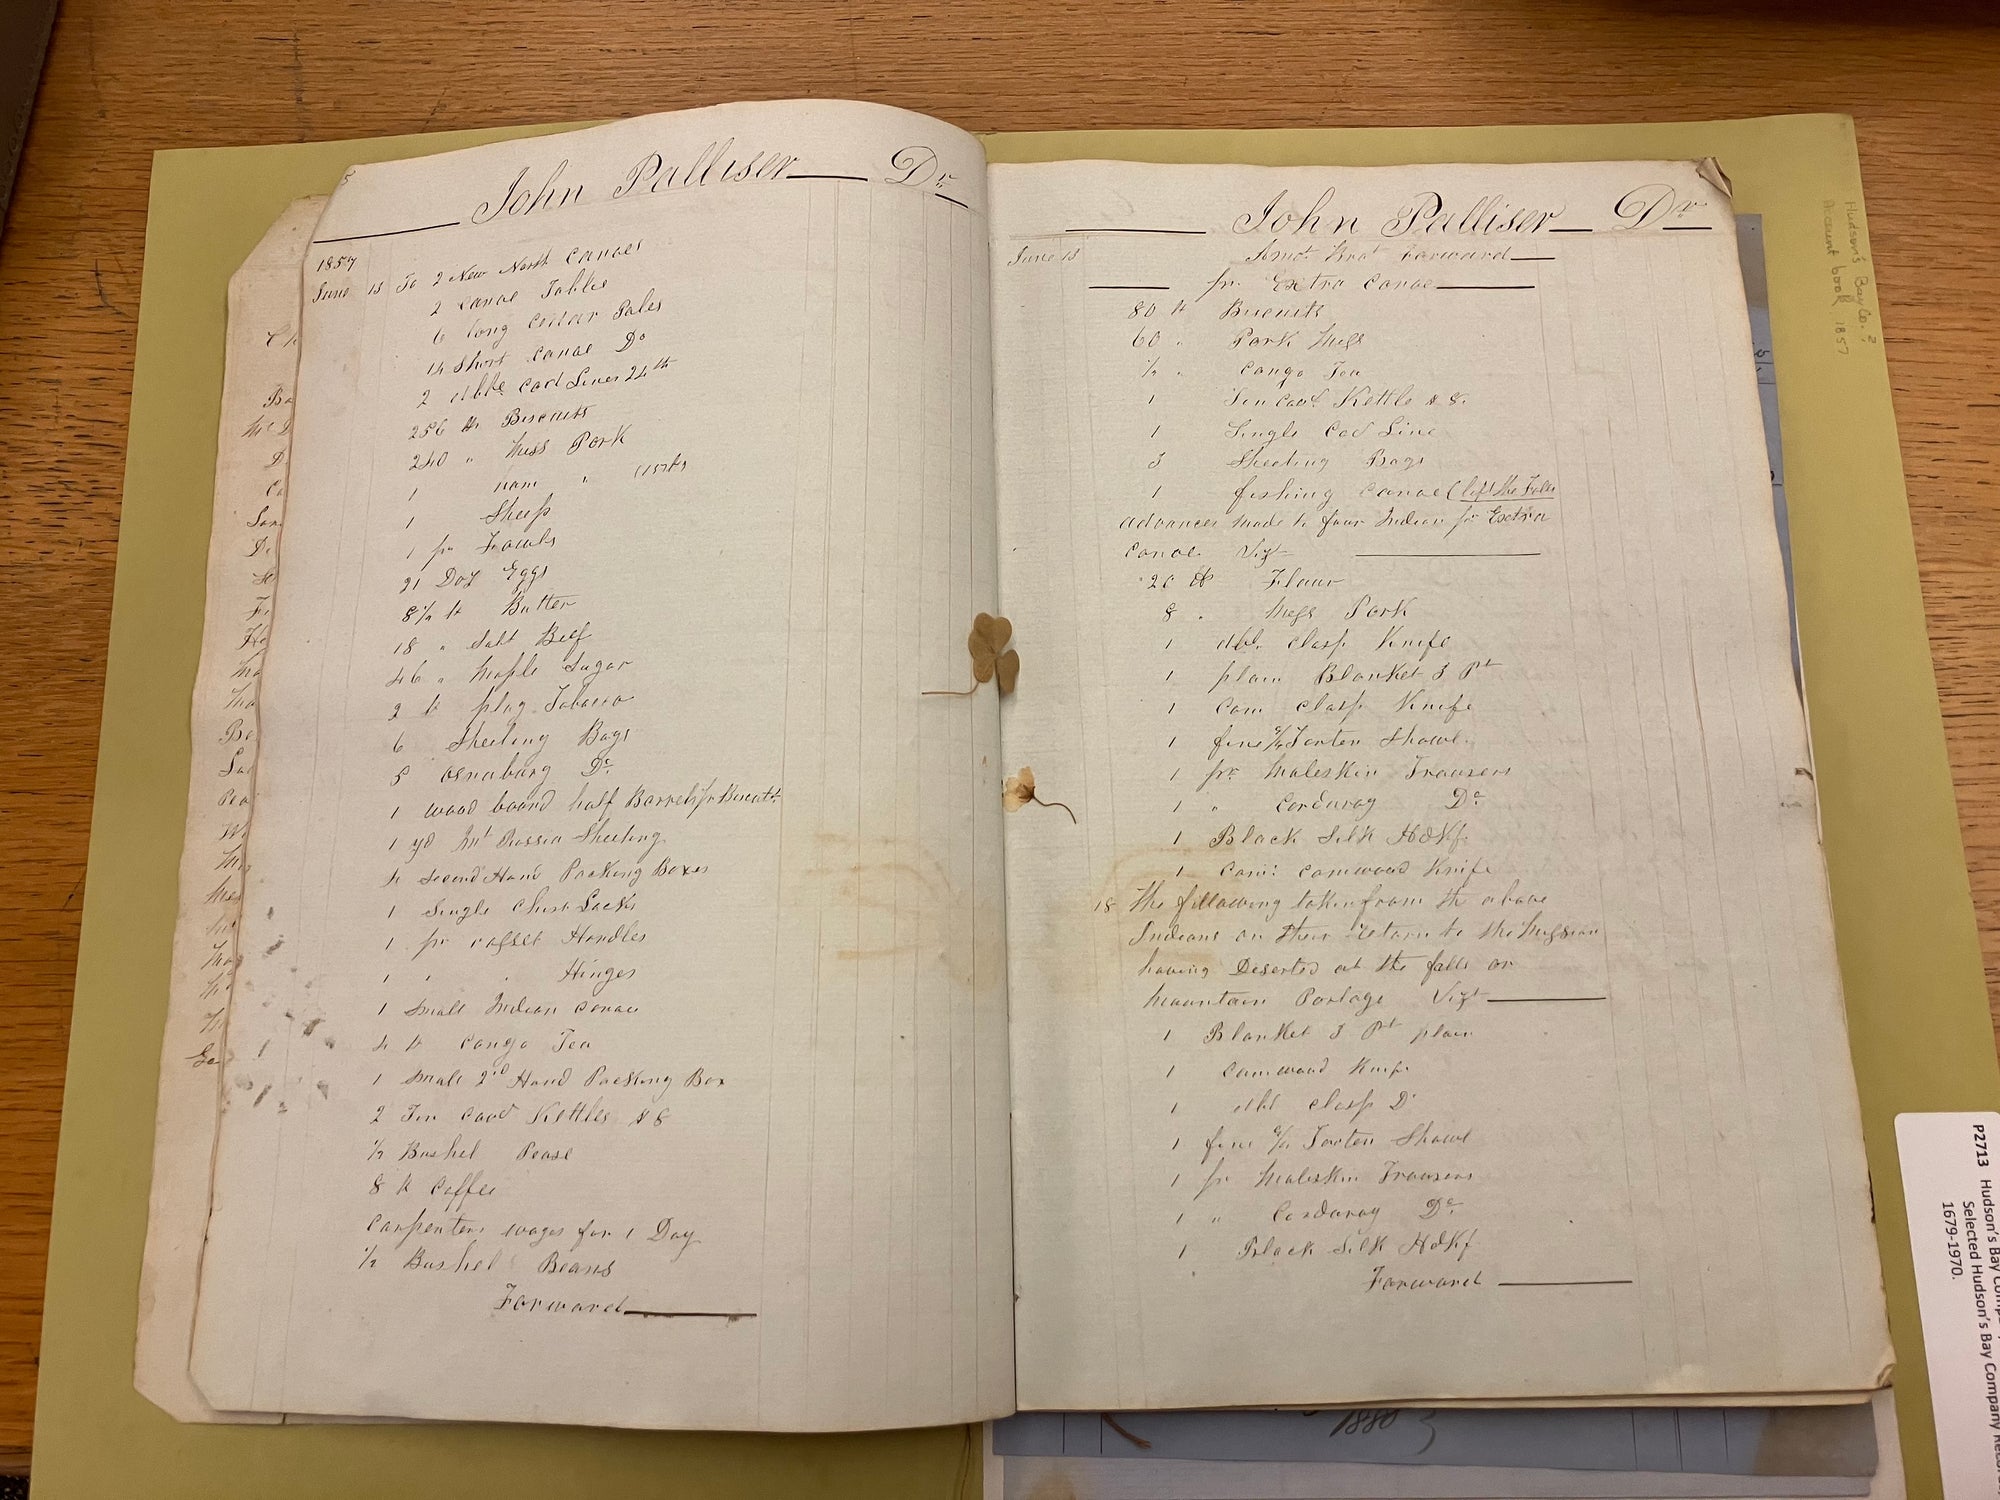 John Palliser Dr
1857
June 13 To 2 New North Canoes
2 Canoe Tables
6 long Poles
14 Short Canoe Do
2 dble Cod Lines 24th
256 lb Biscuits
240 " Mess Pork
1 Ham " (15 lbs
1 Sheep
1 pr Fowls
21 Doz Eggs
8½ lb Butter
18 " Salt Beef
46 " Maple Sugar
2 lb plug Tobacco
6 Sheeting Bags
5 Osnaburg Do
1 wood bound half Barrel for Biscuits
1 yd Russia Sheeting
4 Second Hand Packing Boxes
1 Single Chest Locks
1 pr Handles
1 " " Hinges
1 Small Indian Canoe
4 lb Congo Tea
1 Small 2nd Hand Packing Box
2 Tin Kettles & 8
½ Bushel Pease
8 lb Coffee
Carpenters wages for 1 Day
½ Bushel Beans
Forward
John Palliser Dr
June 13 Amot Brot Forward
pr Extra Canoe
80 lb Biscuits
60 " Pork Mess
½ " Congo Tea
1 Tin Kettle & 8.
1 Single Cod Line
3 Sheeting Bags
1 fishing Canoe (left the Falls
advances made to four Indian pr Extra
Canoe Vizt
20 lb Flour
8 " Mess Pork
1 dbl. clasp Knife
1 plain Blanket 3 Pt
1 Com clasp Knife
1 fine Tartan Shawl.
1 pr Moleskin Trousers
1 " Corduroy Do
1 Black Silk Hdkf
1 Com: camwood Knife
18 The following taken from the above
Indians on their return to the Mission
having Deserted at the falls or
Mountain Portage Vizt
1 Blanket 3 Pt plain
1 Camwood Knife
1 dbl clasp Do
1 fine Tartan Shawl
1 pr Moleskin Trousers
1 " Corduroy Do
1 Black Silk Hdkf
Forward
Hudson's Bay Co.?
Account book 1857
P2713 Hudson's Bay
Selected Hudson's Bay Company
1679-1970.
1880